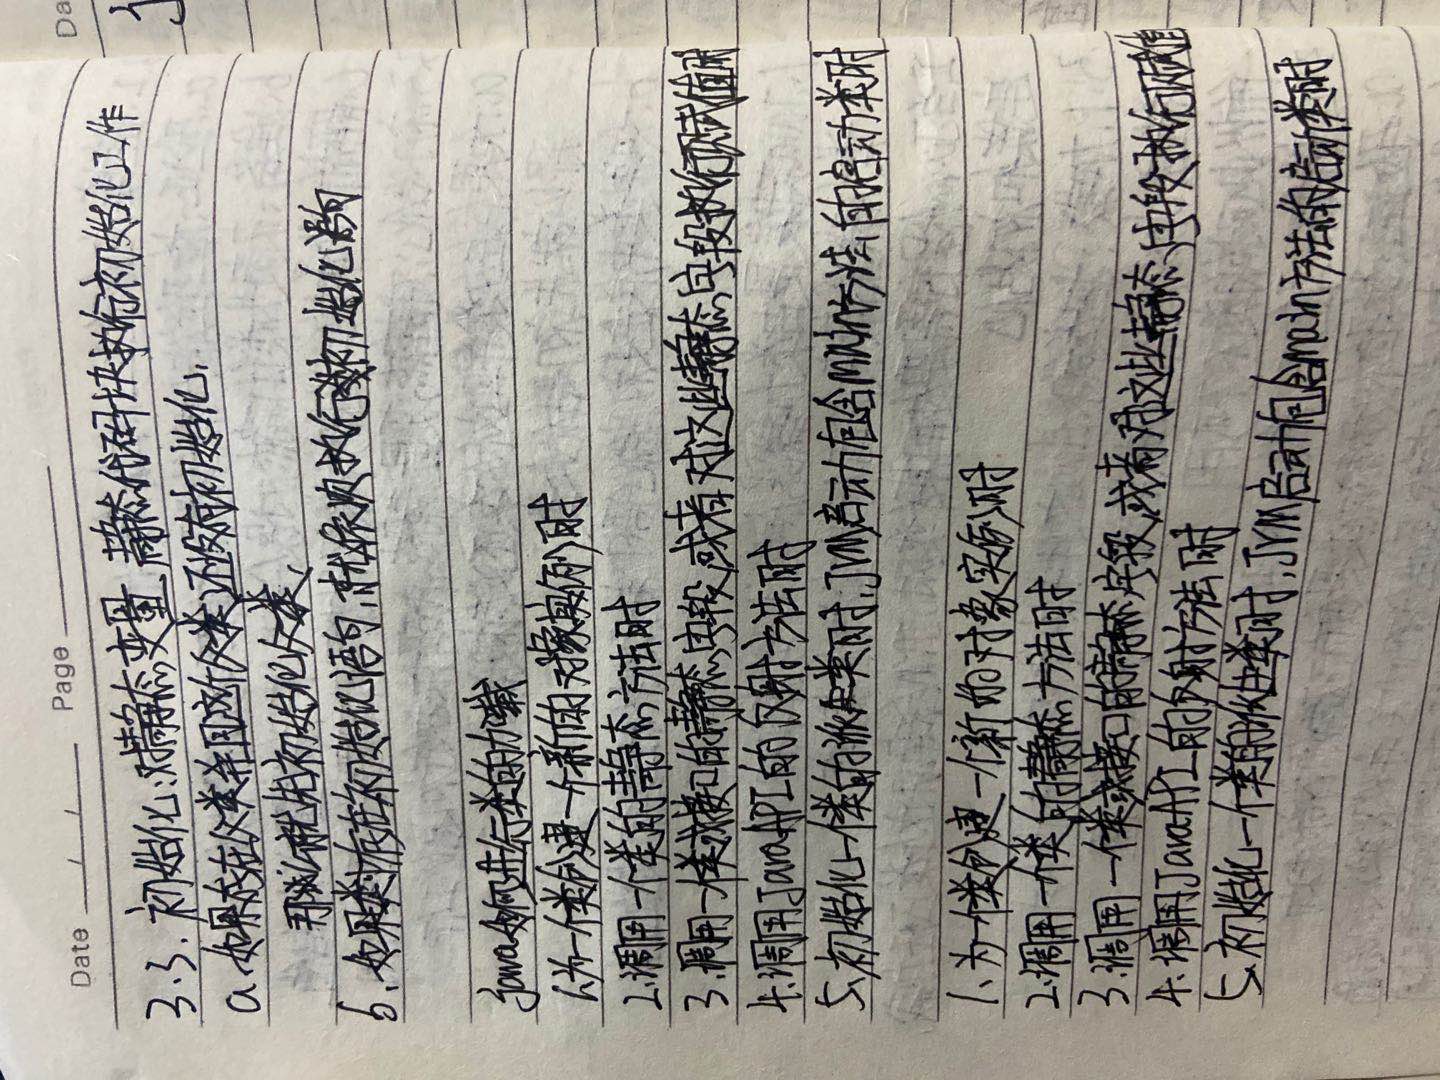 Date / / Page
Da
3.3. 初始化:对静态变量,静态代码块执行初始化工作
a、如果存在父类并且这个父类还没有初始化,
那么就先初始化父类,
b、如果类中存在初始化语句,就依次执行类初始化语句
java如何进行类的加载
1、为一个类创建一个新的对象实例时
2、调用一个类的静态方法时
3、调用一个类或接口的静态字段,或者对这些静态字段执行赋值时
4、调用JavaAPI的反射方法时
5、初始化一个类的派生类时,JVM启动包含main方法的启动类时
1、为一个类创建一个新的对象实例时
2、调用一个类的静态方法时
3、调用一个类或接口的静态字段,或者对这些静态字段执行赋值
4、调用JavaAPI的反射方法时
5、初始化一个类的派生类时,JVM启动包含main方法的启动类时